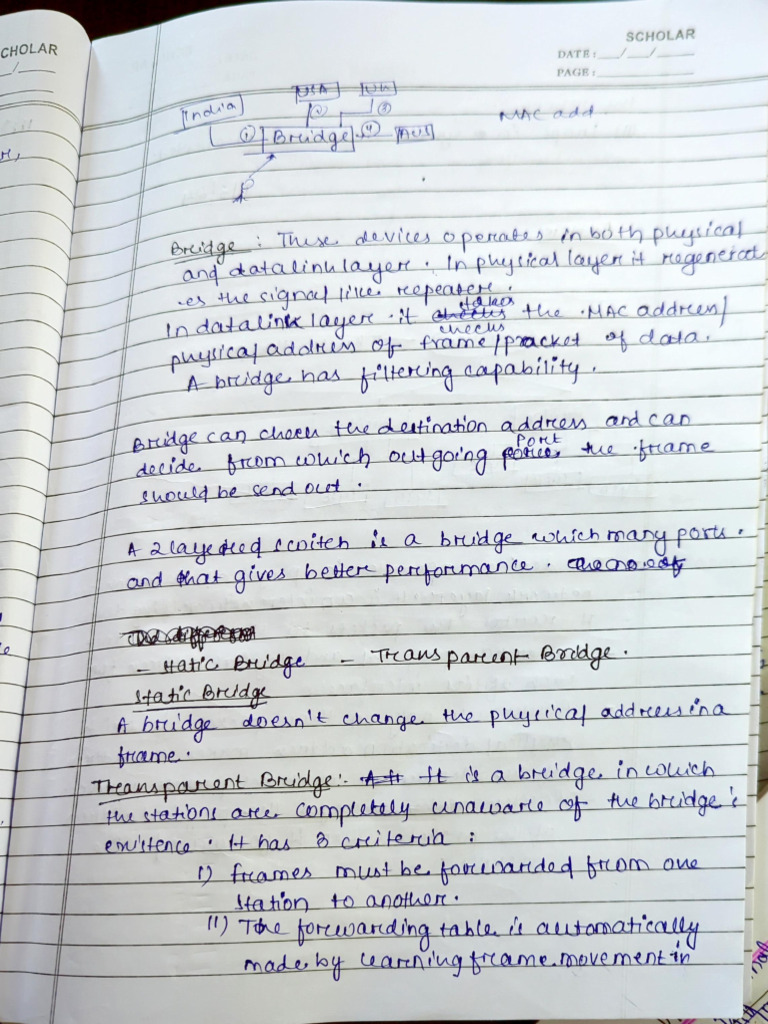 CHOLAR
SCHOLAR
DATE: __/__/__
PAGE:
India
USA
UK
① Bridge ② ③ ④ AUS
MAC add.
P
Bridge : These devices operates in both physical
and datalink layer. In physical layer it regenerat
-es the signal like repeater.
In datalink layer it takes checks the MAC address/
physical address of frame/packet of data.
A bridge has filtering capability.
Bridge can check the destination address and can
decide from which outgoing port the frame
should be send out.
A 2 layered switch is a bridge which many ports.
and that gives better performance.
- static Bridge - Transparent Bridge.
Static Bridge
A bridge doesn't change the physical address in a
frame.
Transparent Bridge:- It is a bridge in which
the stations are completely unaware of the bridge's
existence. It has 3 criteria :
i) frames must be forwarded from one
station to another.
ii) The forwarding table is automatically
made by learning frame movement in